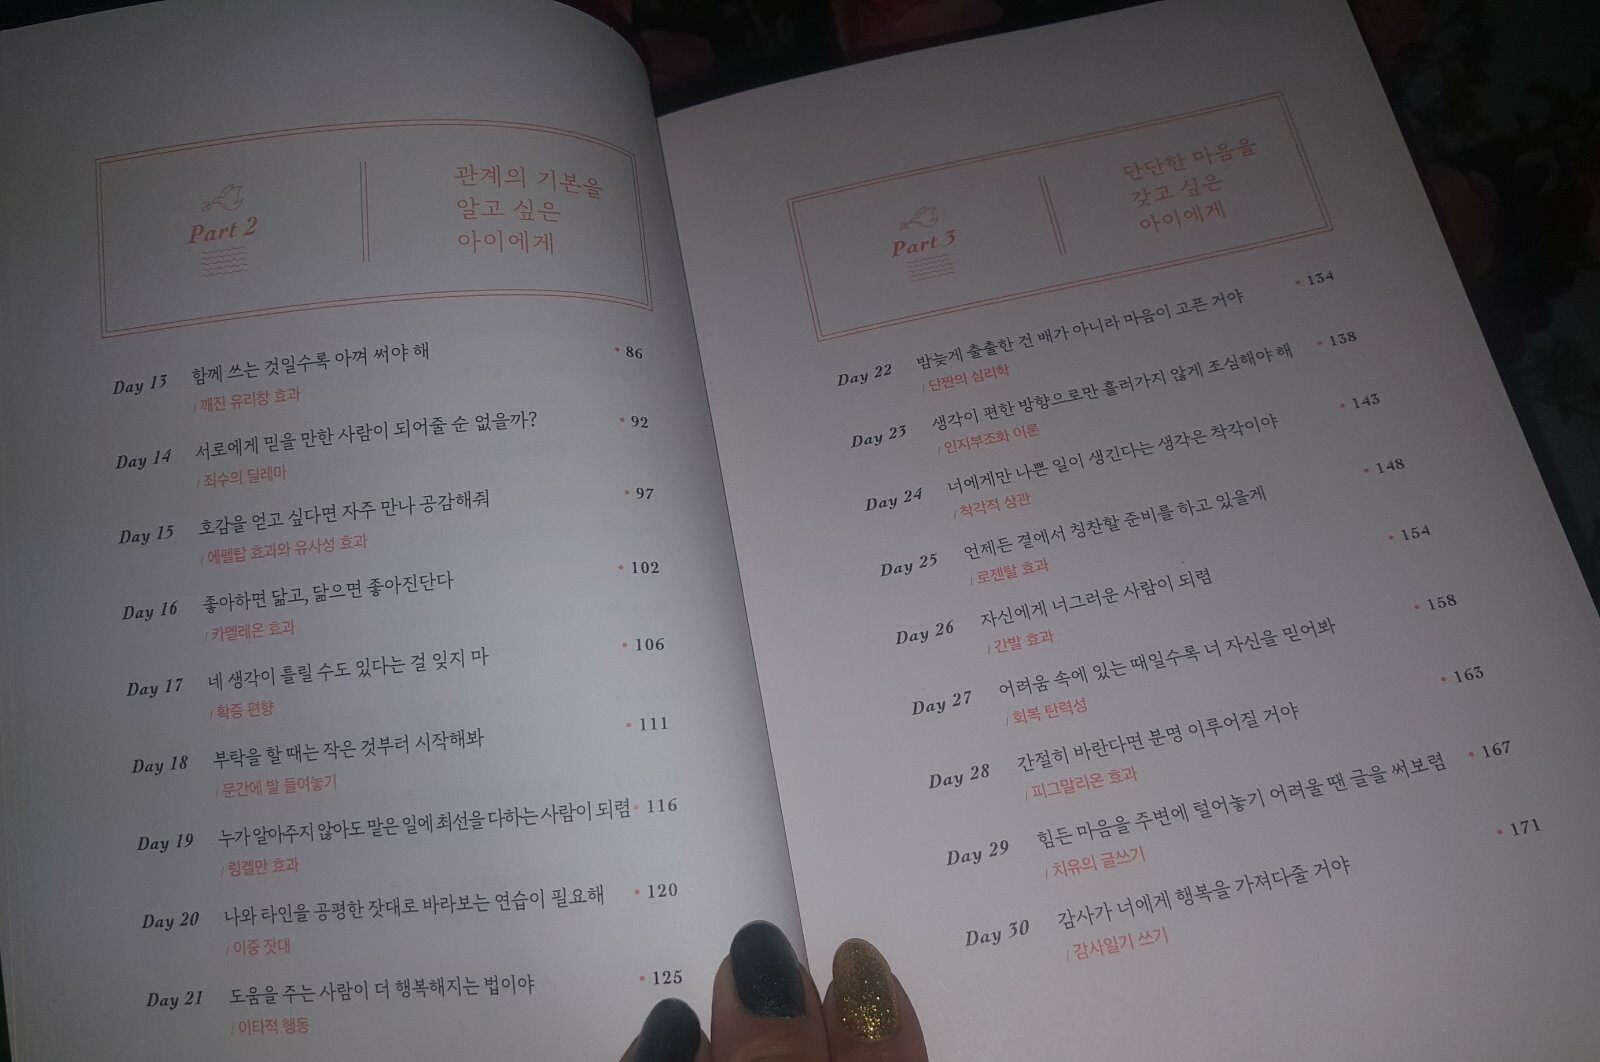 Part 2
관계의 기본을
알고 싶은
아이에게
Day 13 함께 쓰는 것일수록 아껴 써야 해 • 86
/ 깨진 유리창 효과
Day 14 서로에게 믿을 만한 사람이 되어줄 순 없을까? • 92
/ 죄수의 딜레마
Day 15 호감을 얻고 싶다면 자주 만나 공감해줘 • 97
/ 에펠탑 효과와 유사성 효과
Day 16 좋아하면 닮고, 닮으면 좋아진단다 • 102
/ 카멜레온 효과
Day 17 네 생각이 틀릴 수도 있다는 걸 잊지 마 • 106
/ 확증 편향
Day 18 부탁을 할 때는 작은 것부터 시작해봐 • 111
/ 문간에 발 들여놓기
Day 19 누가 알아주지 않아도 맡은 일에 최선을 다하는 사람이 되렴 • 116
/ 링겔만 효과
Day 20 나와 타인을 공평한 잣대로 바라보는 연습이 필요해 • 120
/ 이중 잣대
Day 21 도움을 주는 사람이 더 행복해지는 법이야 • 125
/ 이타적 행동
Part 3
단단한 마음을
갖고 싶은
아이에게
Day 22 밤늦게 출출한 건 배가 아니라 마음이 고픈 거야 • 134
/ 단짠의 심리학
Day 23 생각이 편한 방향으로만 흘러가지 않게 조심해야 해 • 138
/ 인지부조화 이론
Day 24 너에게만 나쁜 일이 생긴다는 생각은 착각이야 • 143
/ 착각적 상관
Day 25 언제든 곁에서 칭찬할 준비를 하고 있을게 • 148
/ 로젠탈 효과
Day 26 자신에게 너그러운 사람이 되렴 • 154
/ 간발 효과
Day 27 어려움 속에 있는 때일수록 너 자신을 믿어봐 • 158
/ 회복 탄력성
Day 28 간절히 바란다면 분명 이루어질 거야 • 163
/ 피그말리온 효과
Day 29 힘든 마음을 주변에 털어놓기 어려울 땐 글을 써보렴 • 167
/ 치유의 글쓰기
Day 30 감사가 너에게 행복을 가져다줄 거야 • 171
/ 감사일기 쓰기